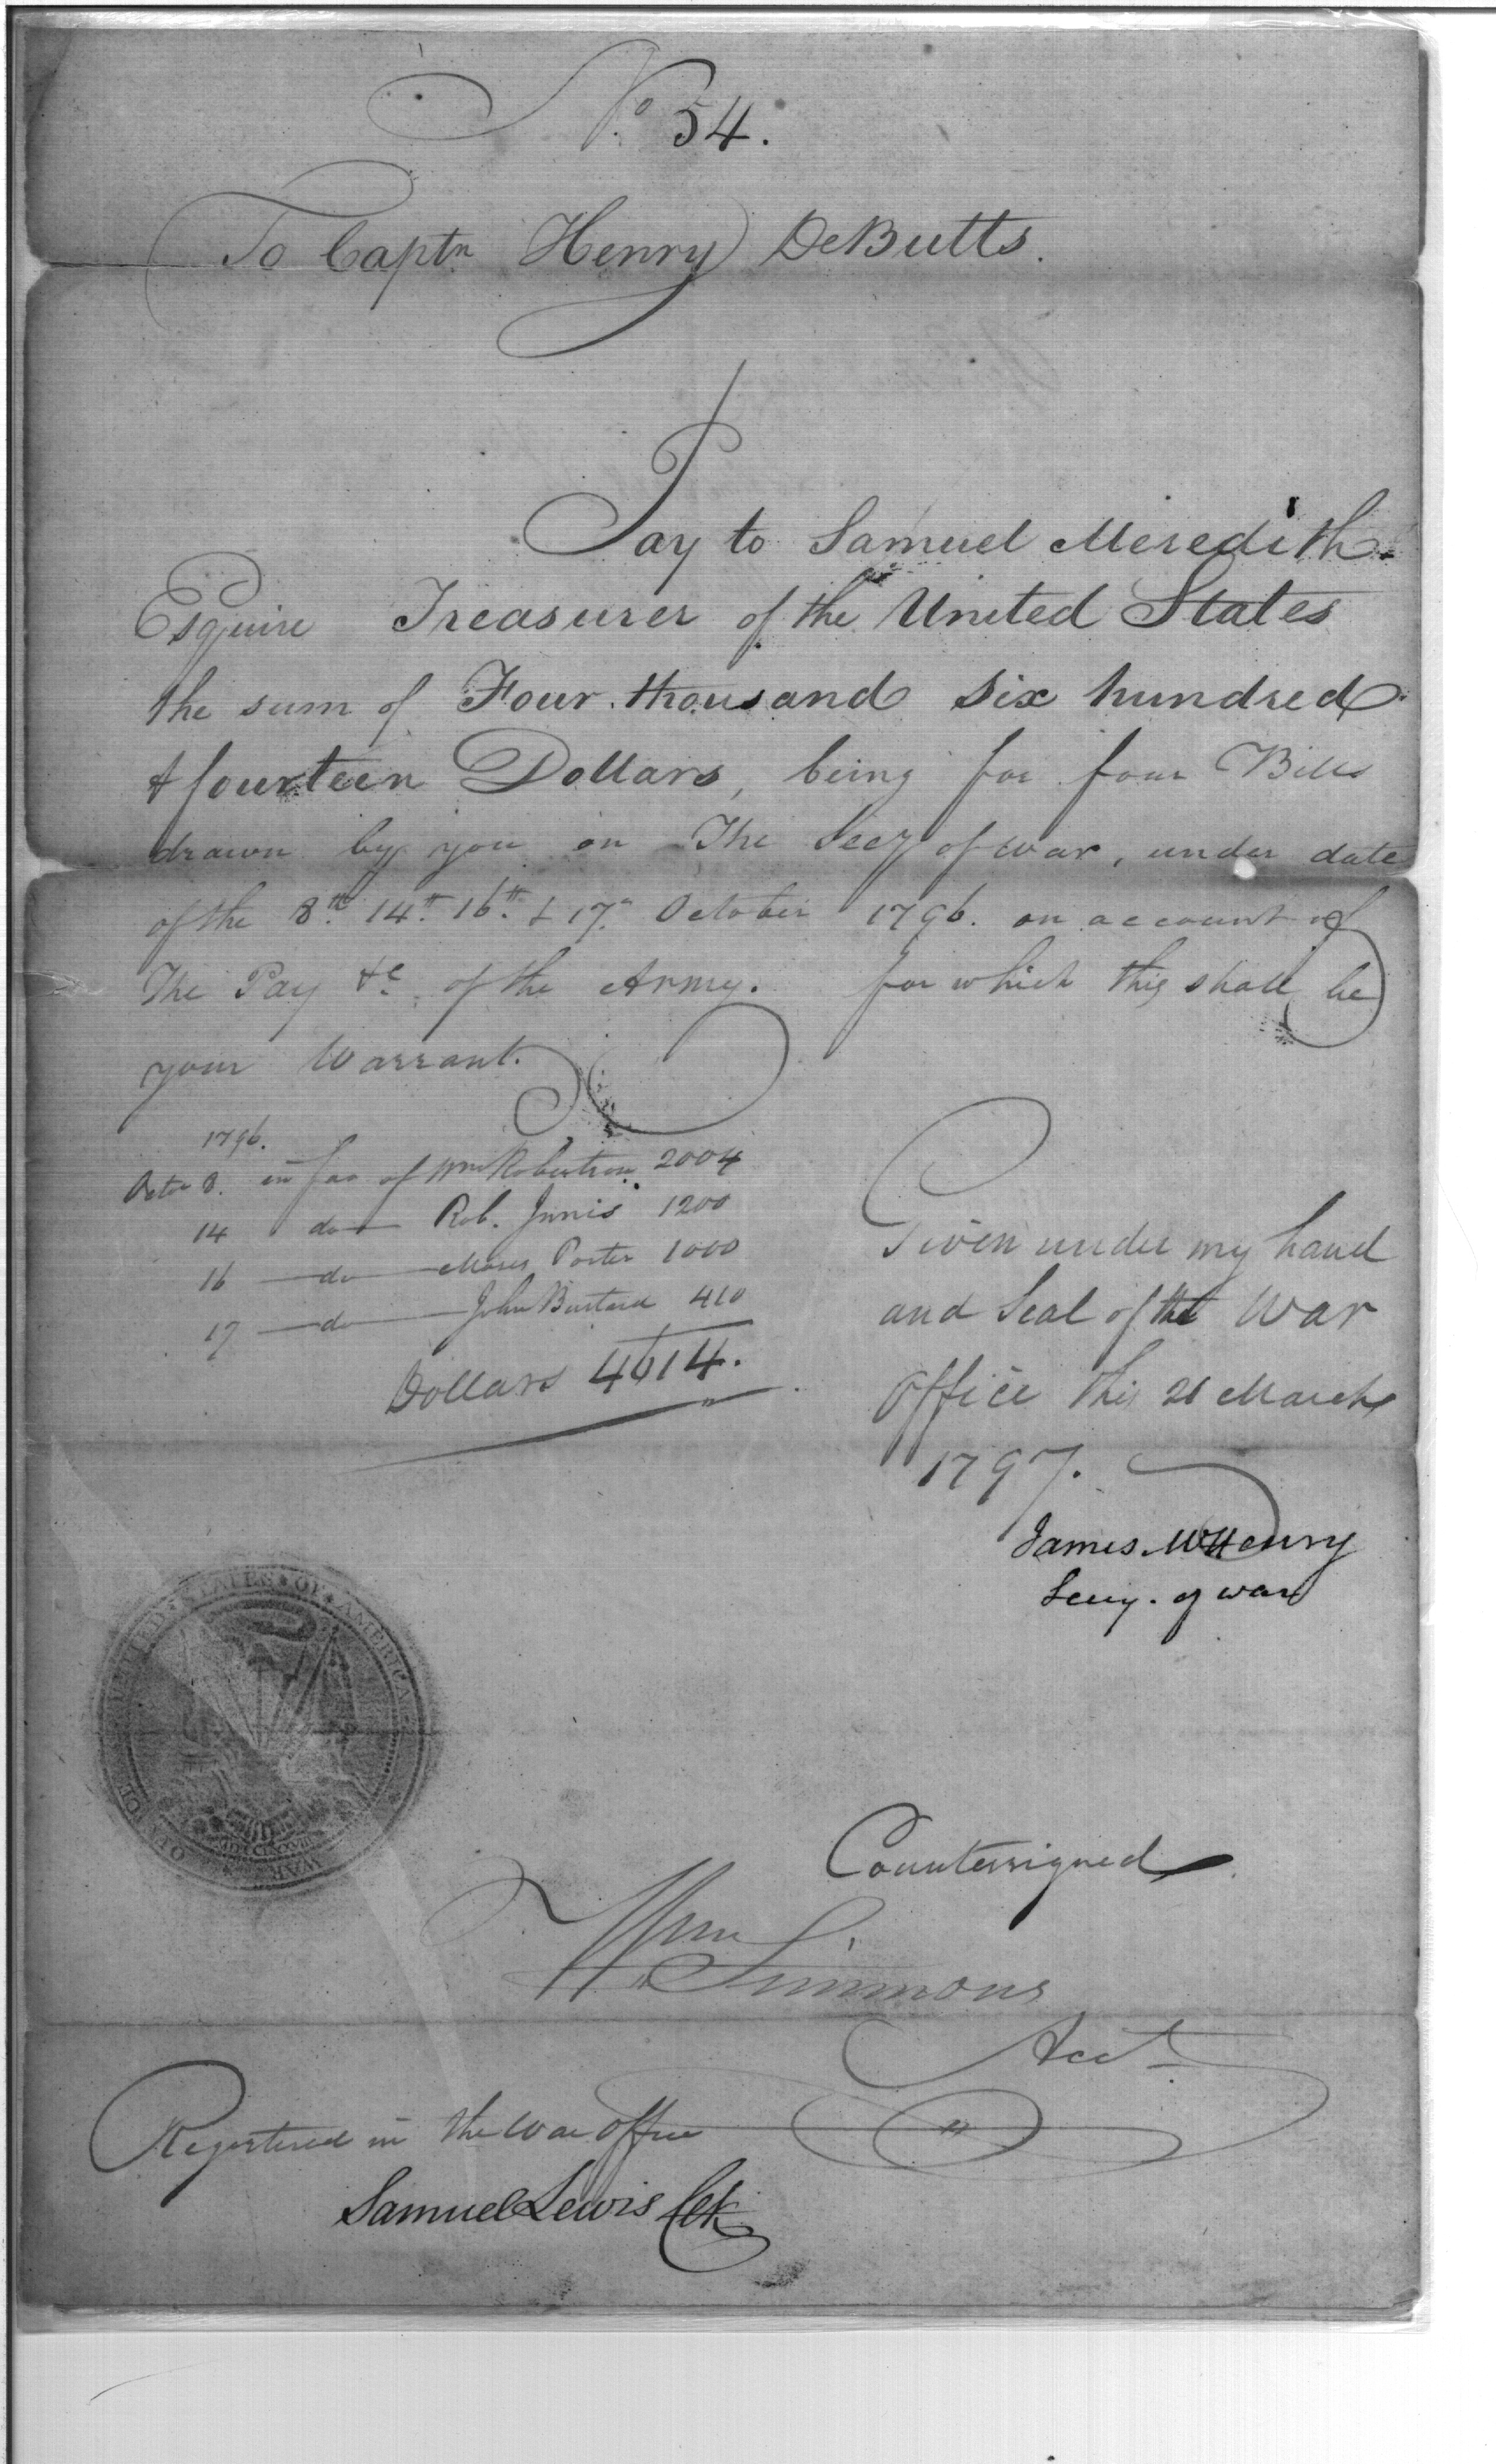 No 54.
To Captn Henry DeButts.
Pay to Samuel Meredith
Esquire Treasurer of the United States
the sum of Four thousand six hundred
& fourteen Dollars, being for four Bills
drawn by you on The Secy of war, under date
of the 8th 14th 16th & 17th October 1796. on account of
The Pay &c. of the Army. for which this shall be
your Warrant.
1796.
Octor 8. in fav of Wm Robertson 2004
14 do Rob. Innis 1200
16 do Moses Porter 1000
17 do John 410
Dollars 4614.
Given under my hand
and Seal of the War
Office this 21 March
1797.
James McHenry
Secy. of war
UNITED STATES OF AMERICA
WAR OFFICE
Countersigned
Wm Simmons
Acct
Registered in the War Office
Samuel Lewis Clk